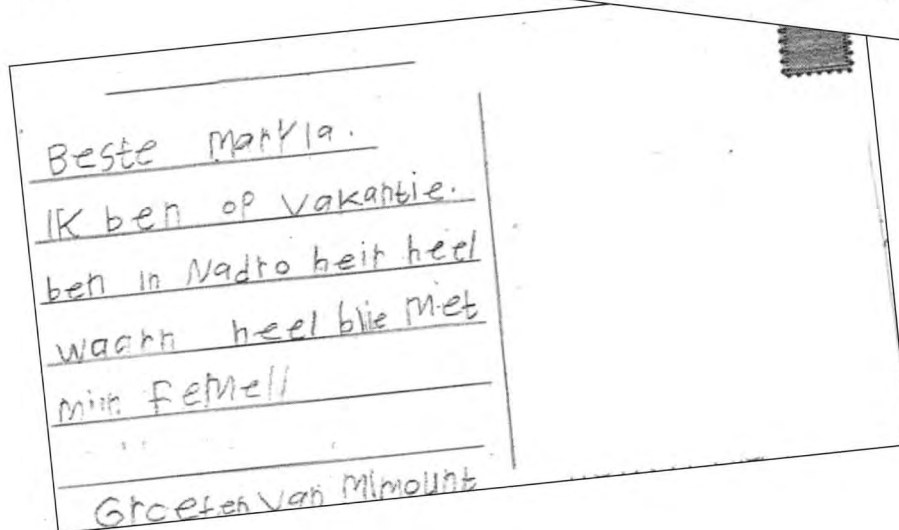 Beste Markia.
IK ben op vakantie.
ben in Nadro heir heel
waarn heel blie Met
Min FeMell
Groeten van Mimount